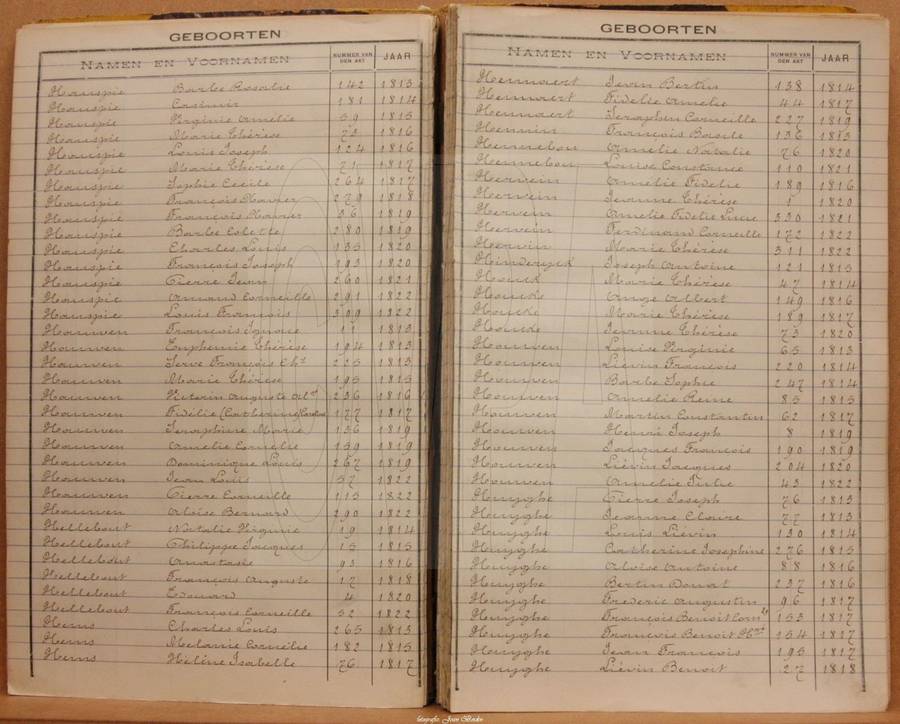 GEBOORTEN
NAMEN EN VOORNAMEN NUMMER VAN DEN AKT JAAR
Hauspie Barbe Rosalie 142 1813
Hauspie Casimir 181 1814
Hauspie Virginie Amélie 59 1815
Hauspie Marie Thérèse 73 1816
Hauspie Louis Joseph 124 1816
Hauspie Marie Thérèse 71 1817
Hauspie Sophie Cecile 264 1817
Hauspie François Xavier 279 1818
Hauspie François Xavier 36 1819
Hauspie Barbe Colette 280 1819
Hauspie Charles Louis 135 1820
Hauspie François Joseph 193 1820
Hauspie Pierre Jean 260 1821
Hauspie Amand Corneille 291 1822
Hauspie Louis François 309 1822
Hauwen François Ignace 11 1813
Hauwen Euphemie Thérèse 194 1813
Hauwen Serve François 225 1813
Hauwen Marie Thérèse 195 1815
Hauwen Victorin Auguste 236 1816
Hauwen Fidélie (Catherine) 177 1817
Hauwen Seraphine Marie 136 1819
Hauwen Amelie Cornélie 159 1819
Hauwen Dominique Louis 267 1819
Hauwen Jean Louis 57 1822
Hauwen Pierre Corneille 115 1822
Hauwen Aloïse Bernard 290 1822
Hellebout Natalie Virginie 19 1814
Hellebout Philippe Jacques 15 1815
Hellebout Anastasie 93 1816
Hellebout Françoi Auguste 12 1818
Hellebout Edouard 4 1820
Hellebout François Corneille 52 1822
Hems Charles Louis 265 1813
Hems Melanie Cornélie 182 1815
Hems Héline Isabelle 76 1817
GEBOORTEN
NAMEN EN VOORNAMEN NUMMER VAN DEN AKT JAAR
Hennaert Jean Bertin 138 1814
Hennaert Fidelie Amelie 44 1817
Hennaert Seraphin Corneille 227 1819
Hennin François Basile 136 1813
Hennebou Amelie Natalie 76 1820
Hennebou Louise Constance 110 1821
Herwein Amélie Fidelie 189 1816
Herwein Jeanne Thérèse 1 1820
Herwein Amelie Fidelie Luce 330 1821
Herwein Ferdinand Corneille 172 1822
Herwin Marie Thérèse 311 1822
Hinderyck Joseph Antoine 121 1815
Houck Marie Thérèse 47 1814
Houcke Ange Albert 149 1816
Houcke Marie Thérèse 189 1817
Houcke Jeanne Thérèse 73 1820
Houwen Louise Virginie 65 1813
Houwen Liévin François 220 1814
Houwen Barbe Sophie 247 1814
Houwen Amelie Reine 85 1815
Houwen Martin Constantin 62 1817
Houwen Henri Joseph 8 1819
Houwen Jacques François 190 1819
Houwen Liévin Jacques 204 1820
Houwen Amelie Julie 43 1822
Huyghe Pierre Joseph 76 1813
Huyghe Jeanne Claire 77 1813
Huyghe Louis Liévin 130 1814
Huyghe Catherine Josephine 276 1815
Huyghe Aloïse Antoine 88 1816
Huyghe Bertin Donat 237 1816
Huyghe Frederic Augustin 96 1817
Huyghe François Benoit 153 1817
Huyghe François Benoit 154 1817
Huyghe Jean François 195 1817
Huyghe Liévin Benoit 27 1818